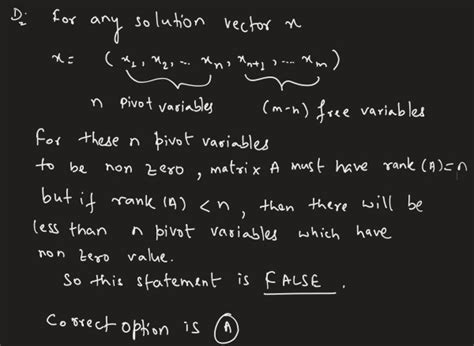 D: for any solution vector x
x = (x₁, x₂, ... xₙ, xₙ₊₁, ... xₘ)
n pivot variables (m-n) free variables
for these n pivot variables
to be non zero, matrix A must have rank (A)=n
but if rank (A) < n, then there will be
less than n pivot variables which have
non zero value.
So this statement is FALSE.
Correct option is A